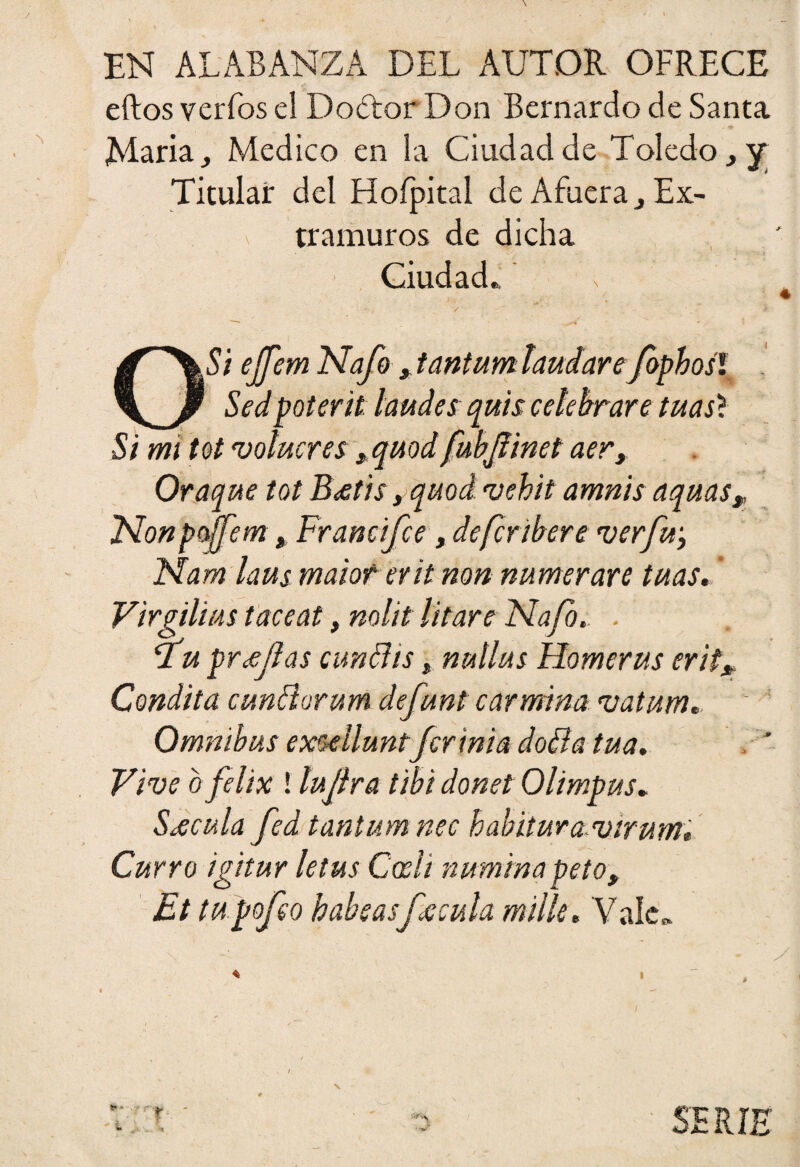 EN ALABANZA DEL AUTOR OFRECE
eſtos verſos el Doctor Don Bernardo de Santa
Maria, Medico en la Ciudad de Toledo, y
Titular del Hoſpital de Afuera, Ex-
tramuros de dicha
Ciudad.
O Si eſſem Naſo, tantum laudare ſophos!
Sed poterit laudes quis celebrare tuas?
Si mi tot volucres, quod ſubſtinet aer,
Oraque tot Bætis, quod vehit amnis aquas,
Non poſſem, Franciſce, deſcribere verſu;
Nam laus maior erit non numerare tuas.
Virgilius taceat, nolit litare Naſo.
Tu præſtas cunctis, nullus Homerus erit,
Condita cunctorum deſunt carmina vatum.
Omnibus excellunt ſcrinia docta tua.
Vive ò felix! luſtra tibi donet Olimpus.
Sæcula ſed tantum nec habitura virum.
Curro igitur letus Cœli numina peto,
Et tu poſco habeas ſæcula mille. Vale.
SERIE